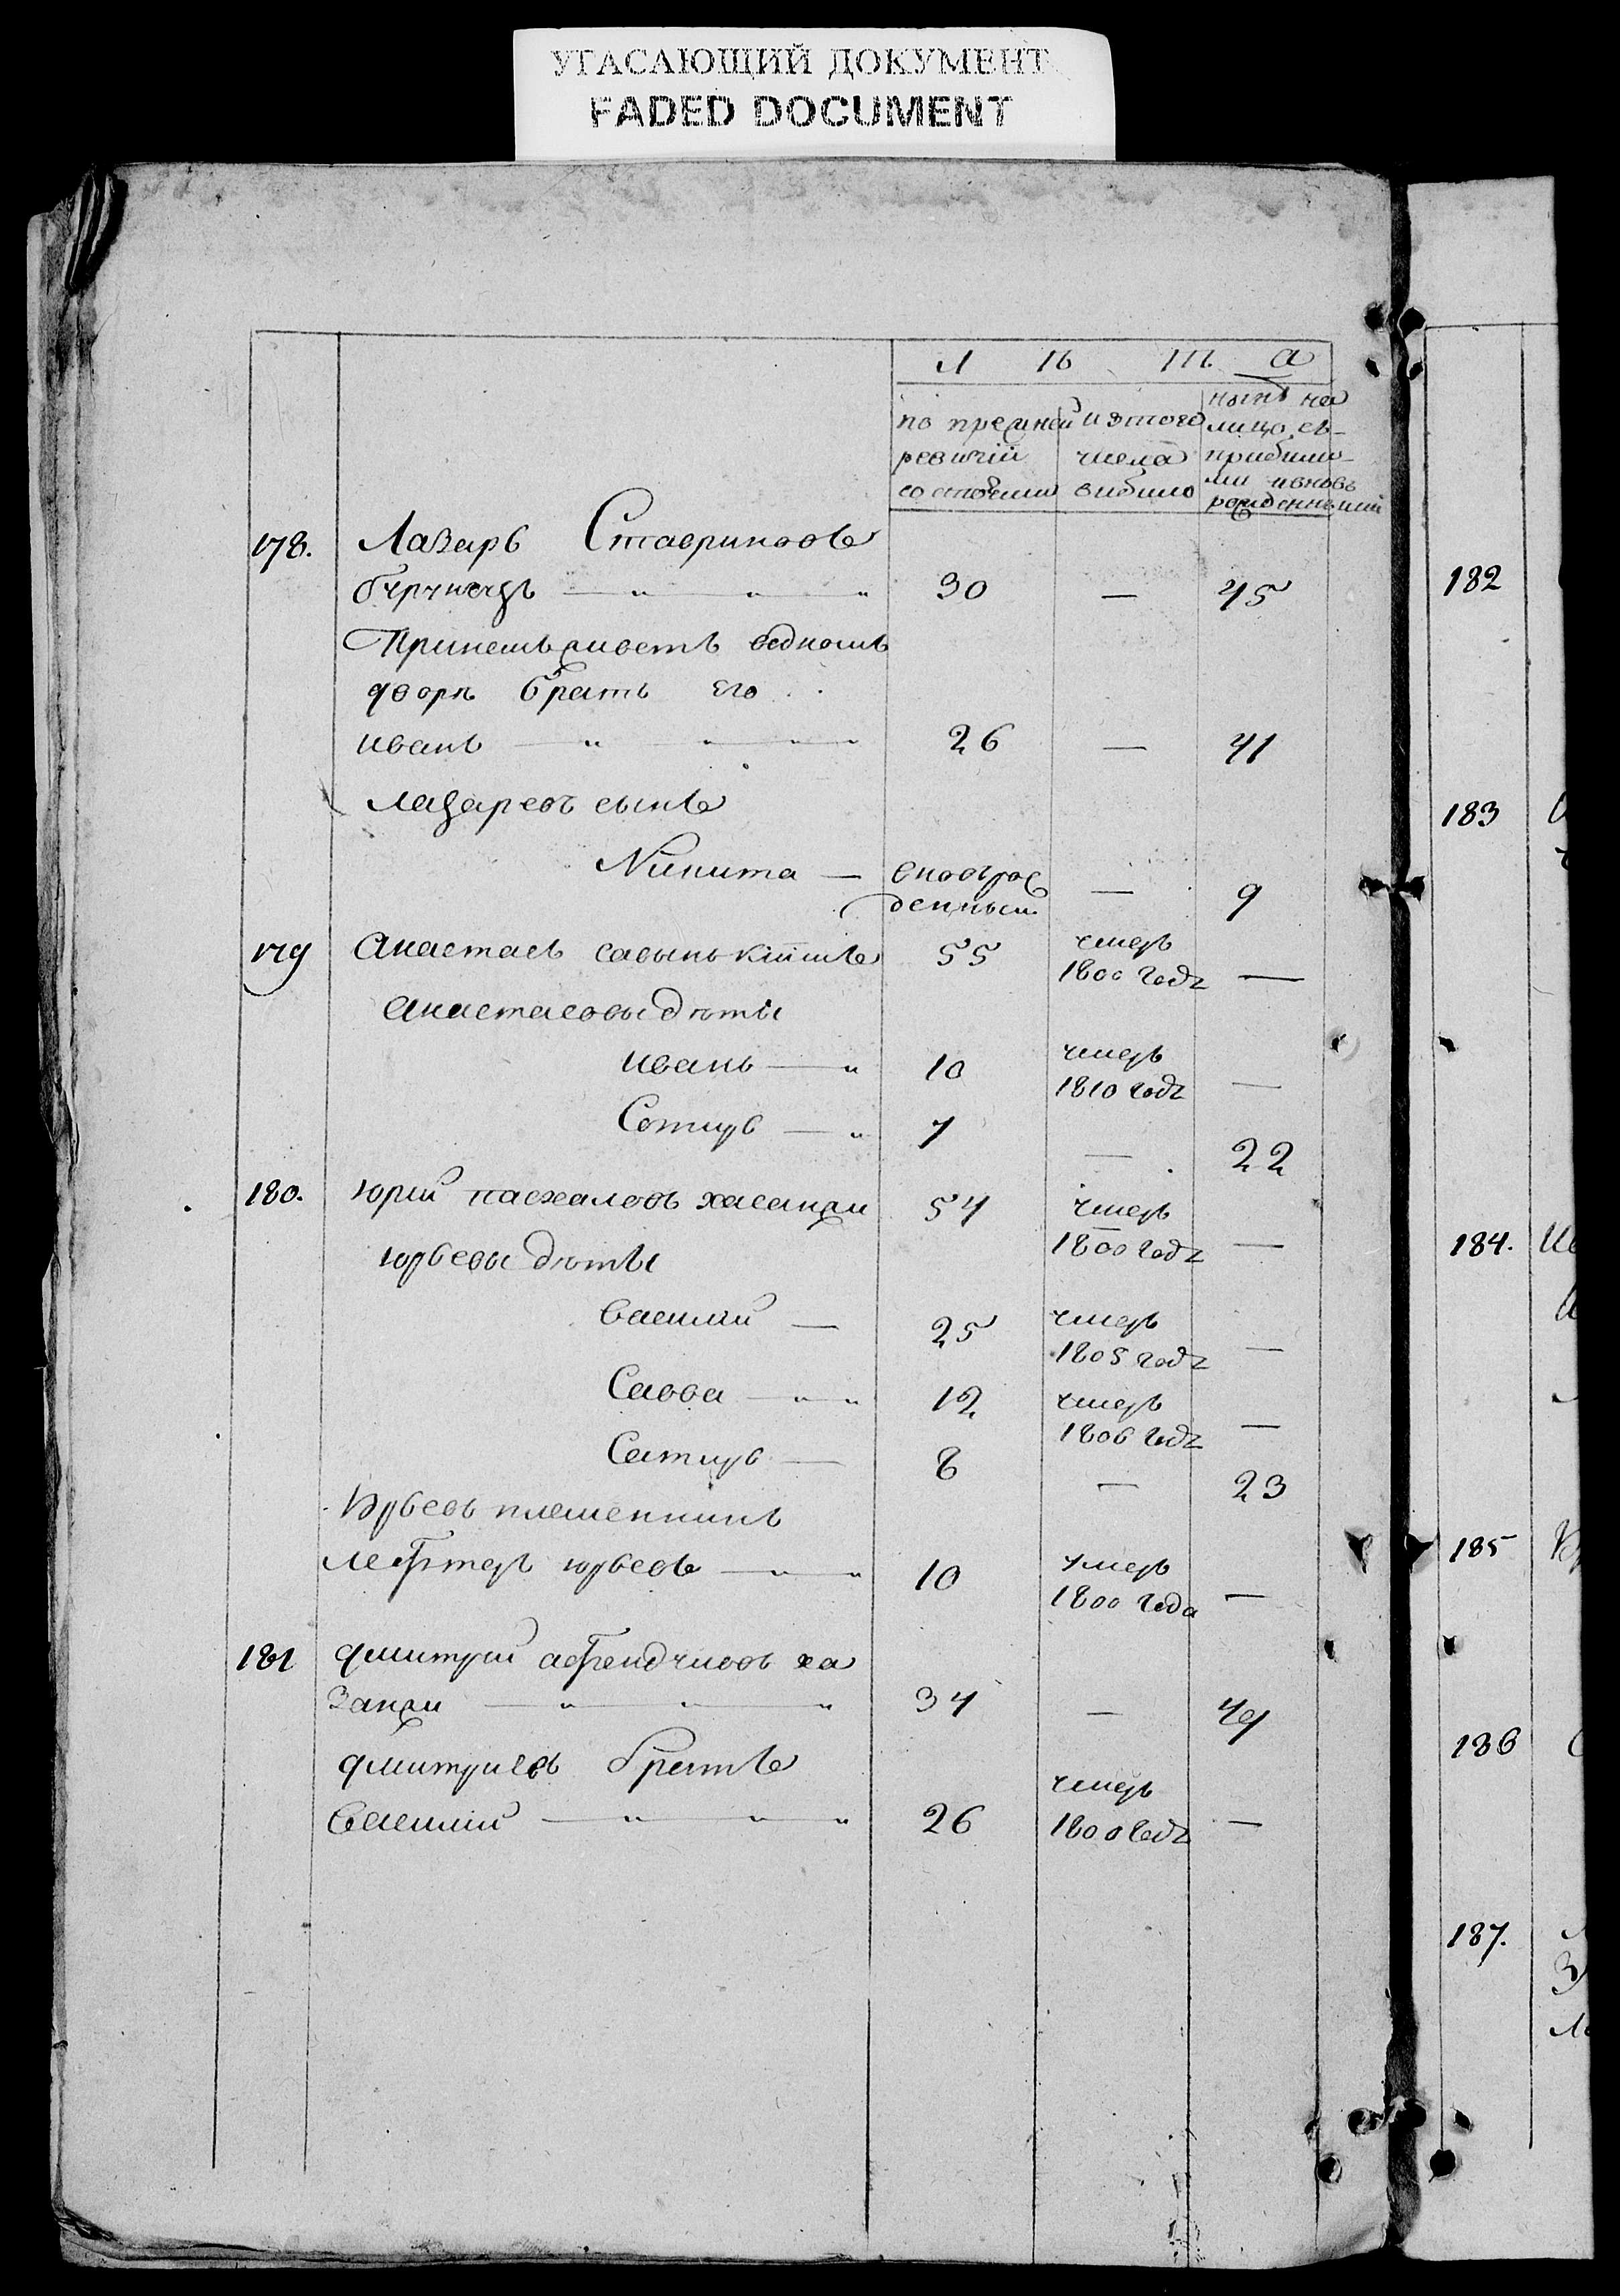 УГАСАЮЩИЙ ДОКУМЕНТ
FADED DOCUMENT
Л ѣ т а
по прежней ревизіи состояли
и этого числа выбыло
ныне на лицо съ прибылыми и вновь рожденными
178. Лазарь Ставриновъ
30 — 45
При немъ живетъ водномъ
дворѣ братъ его
иванъ 26 — 41
лазаревъ сынъ
Никита — вновърожденный — 9
179 Анастасъ 55 умеръ 1800 годъ —
Анастасовы дѣти
иванъ — 10 умеръ 1810 годъ —
Сотиръ — 7 — 22
180. юрий пасхаловъ хасанжи 54 умеръ 1800 годъ —
юрьевы дѣти
василий — 25 умеръ 1805 годъ —
Савва — 12 умеръ 1806 годъ —
Сатиръ — 8 — 23
Юрьевъ племенникъ
лефтеръ юрьевъ — 10 умеръ 1800 года —
181 дмитрий афендчиовъ ха
занжи 34 — 49
дмитриевъ братъ
василий 26 умеръ 1800 годъ —
182
183
184.
185
186
187.